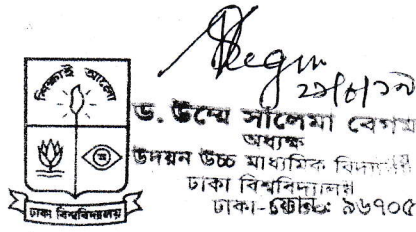 শিক্ষাই আলো
ঢাকা বিশ্ববিদ্যালয়
Begum
ড. উম্মে সালেমা বেগম
অধ্যক্ষ
উদয়ন উচ্চ মাধ্যমিক বিদ্যালয়
ঢাকা বিশ্ববিদ্যালয়
ঢাকা-